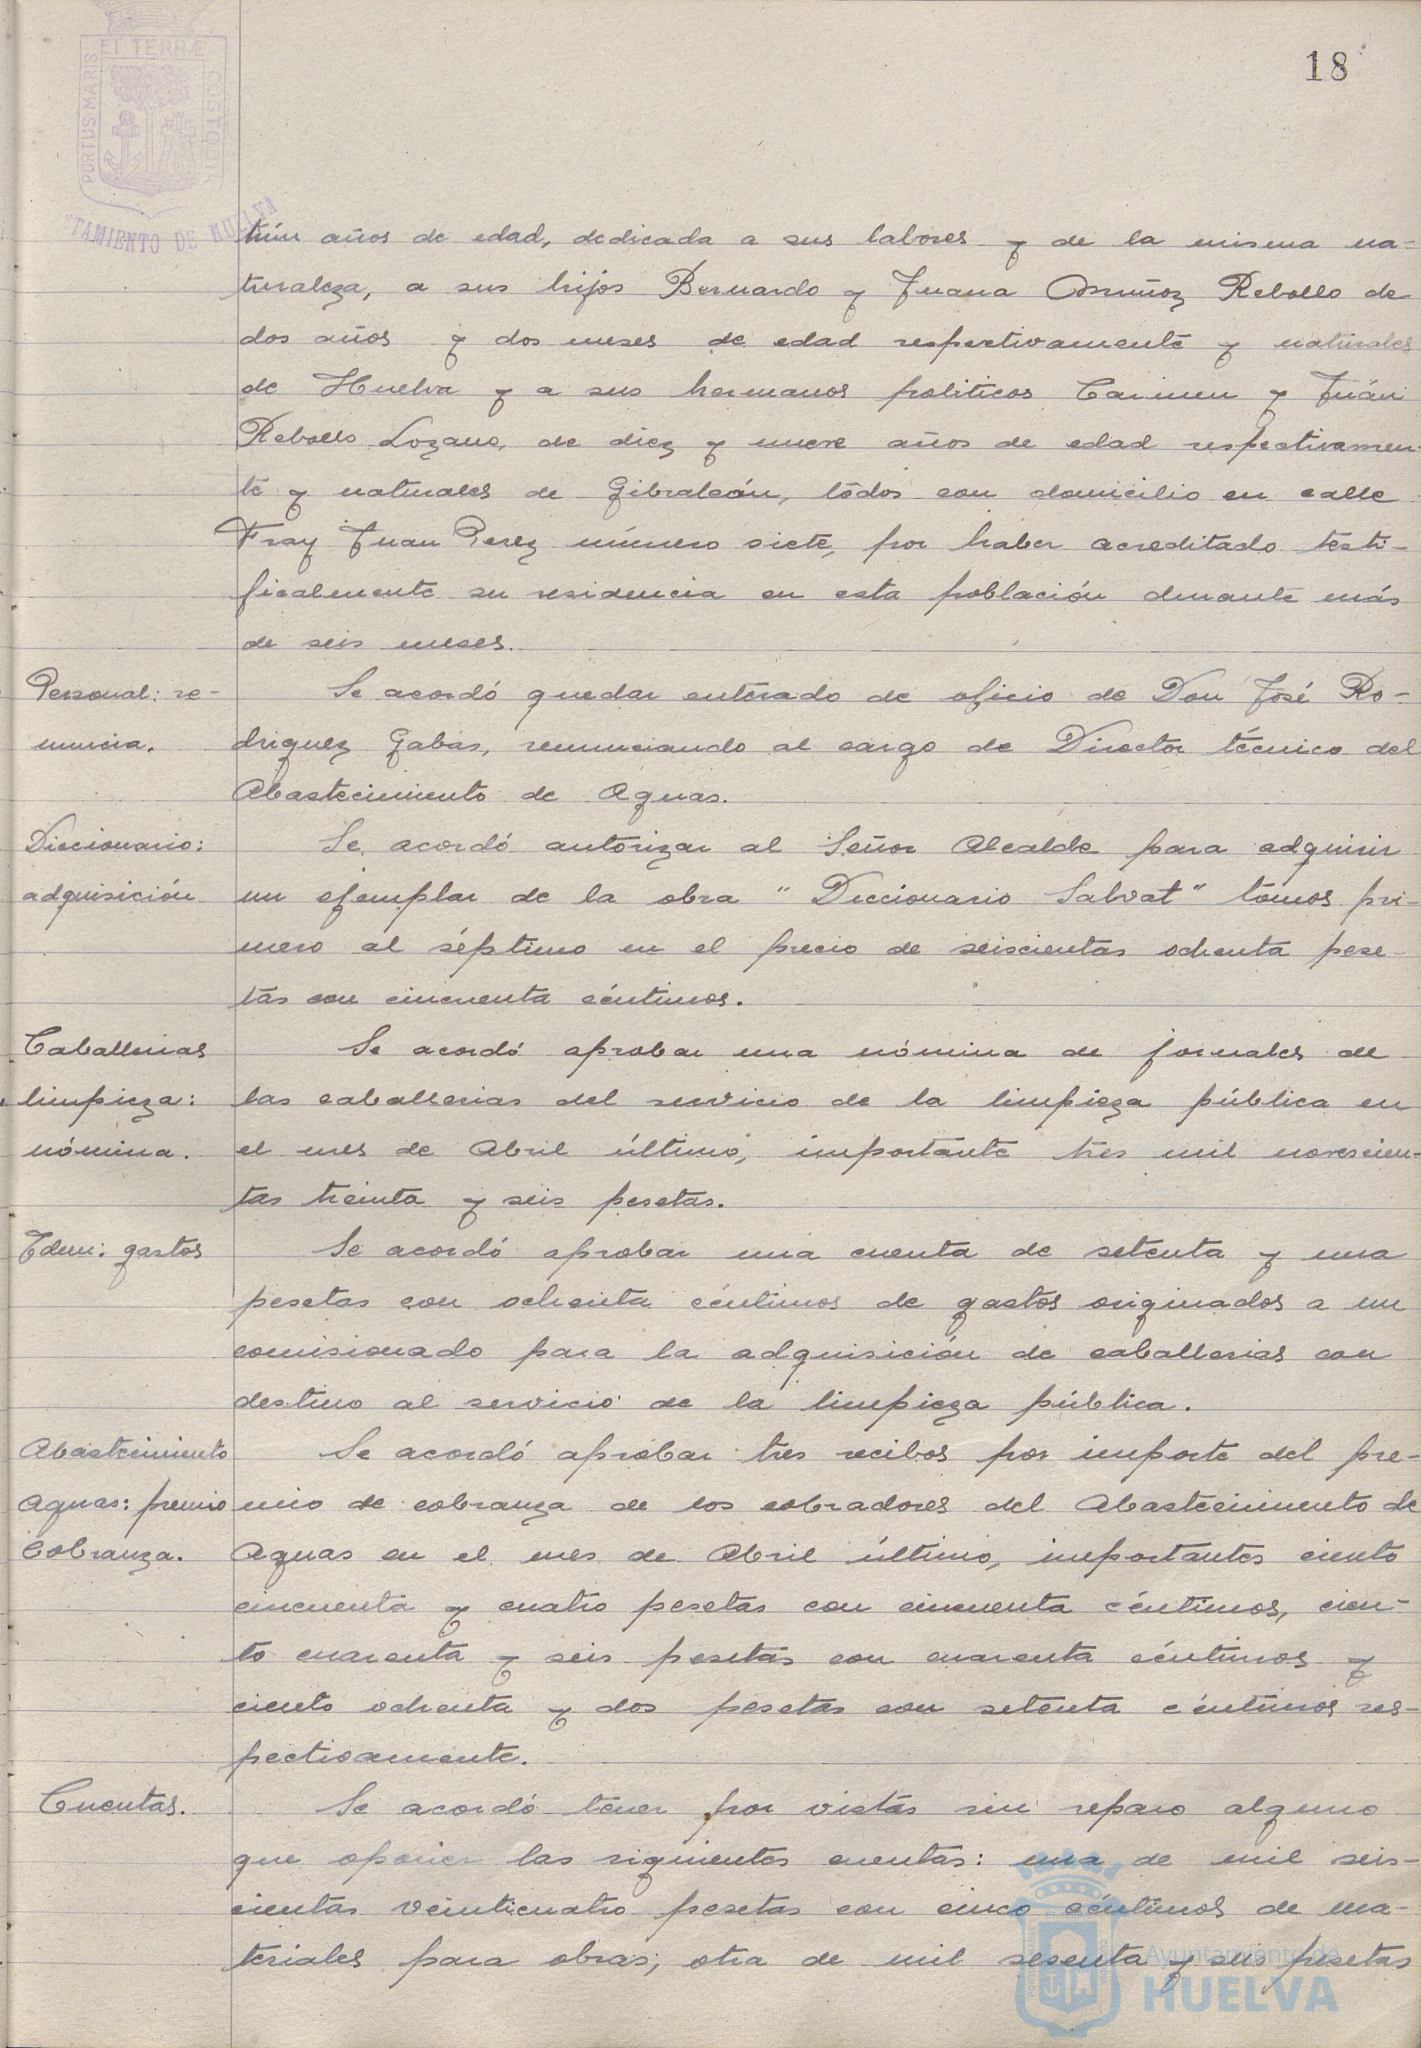 18
PORTUS MARIS ET TERRÆ CUSTODIA
TAMIENTO DE HUELVA
años de edad, dedicada a sus labores y de la misma na-
turaleza, a sus hijos Bernardo y Juana Muñoz Rebollo de
dos años y dos meses de edad respectivamente y naturales
de Huelva y a sus hermanos politicos Carmen y Juán
Rebollo Lozano, de diez y nueve años de edad respectivamen-
te y naturales de Gibraleón, todos con domicilio en calle
Fray Juan Perez número siete, por haber acreditado testi-
ficalmente su residencia en esta población durante más
de seis meses.
Personal: re-
nuncia.
Se acordó quedar enterado de oficio de Don José Ro-
driguez Gabas, renunciando al cargo de Director técnico del
Abastecimiento de Aguas.
Diccionario:
adquisición
Se acordó autorizar al Señor Alcalde para adquirir
un ejemplar de la obra "Diccionario Salvat" tomos pri-
mero al séptimo en el precio de seiscientas ochenta pese-
tas con cincuenta céntimos.
Caballerias
limpieza:
nómina.
Se acordó aprobar una nómina de jornales de
las caballerias del servicio de la limpieza pública en
el mes de Abril último, importante tres mil novescien-
tas treinta y seis pesetas.
Idem: gastos
Se acordó aprobar una cuenta de setenta y una
pesetas con ochenta céntimos de gastos originados a un
comisionado para la adquisición de caballerias con
destino al servicio de la limpieza pública.
Abastecimiento
Aguas: premio
Cobranza.
Se acordó aprobar tres recibos por importe del pre-
mio de cobranza de los cobradores del Abastecimiento de
Aguas en el mes de Abril último, importantes ciento
cincuenta y cuatro pesetas con cincuenta céntimos, cien-
to cuarenta y seis pesetas con cuarenta céntimos y
ciento ochenta y dos pesetas con setenta céntimos res-
pectivamente.
Cuentas.
Se acordó tener por vistas sin reparo alguno
que oponer las siguientes cuentas: una de mil seis-
cientas veinticuatro pesetas con cinco céntimos de ma-
teriales para obras; otra de mil sesenta y seis pesetas
Ayuntamiento de
HUELVA